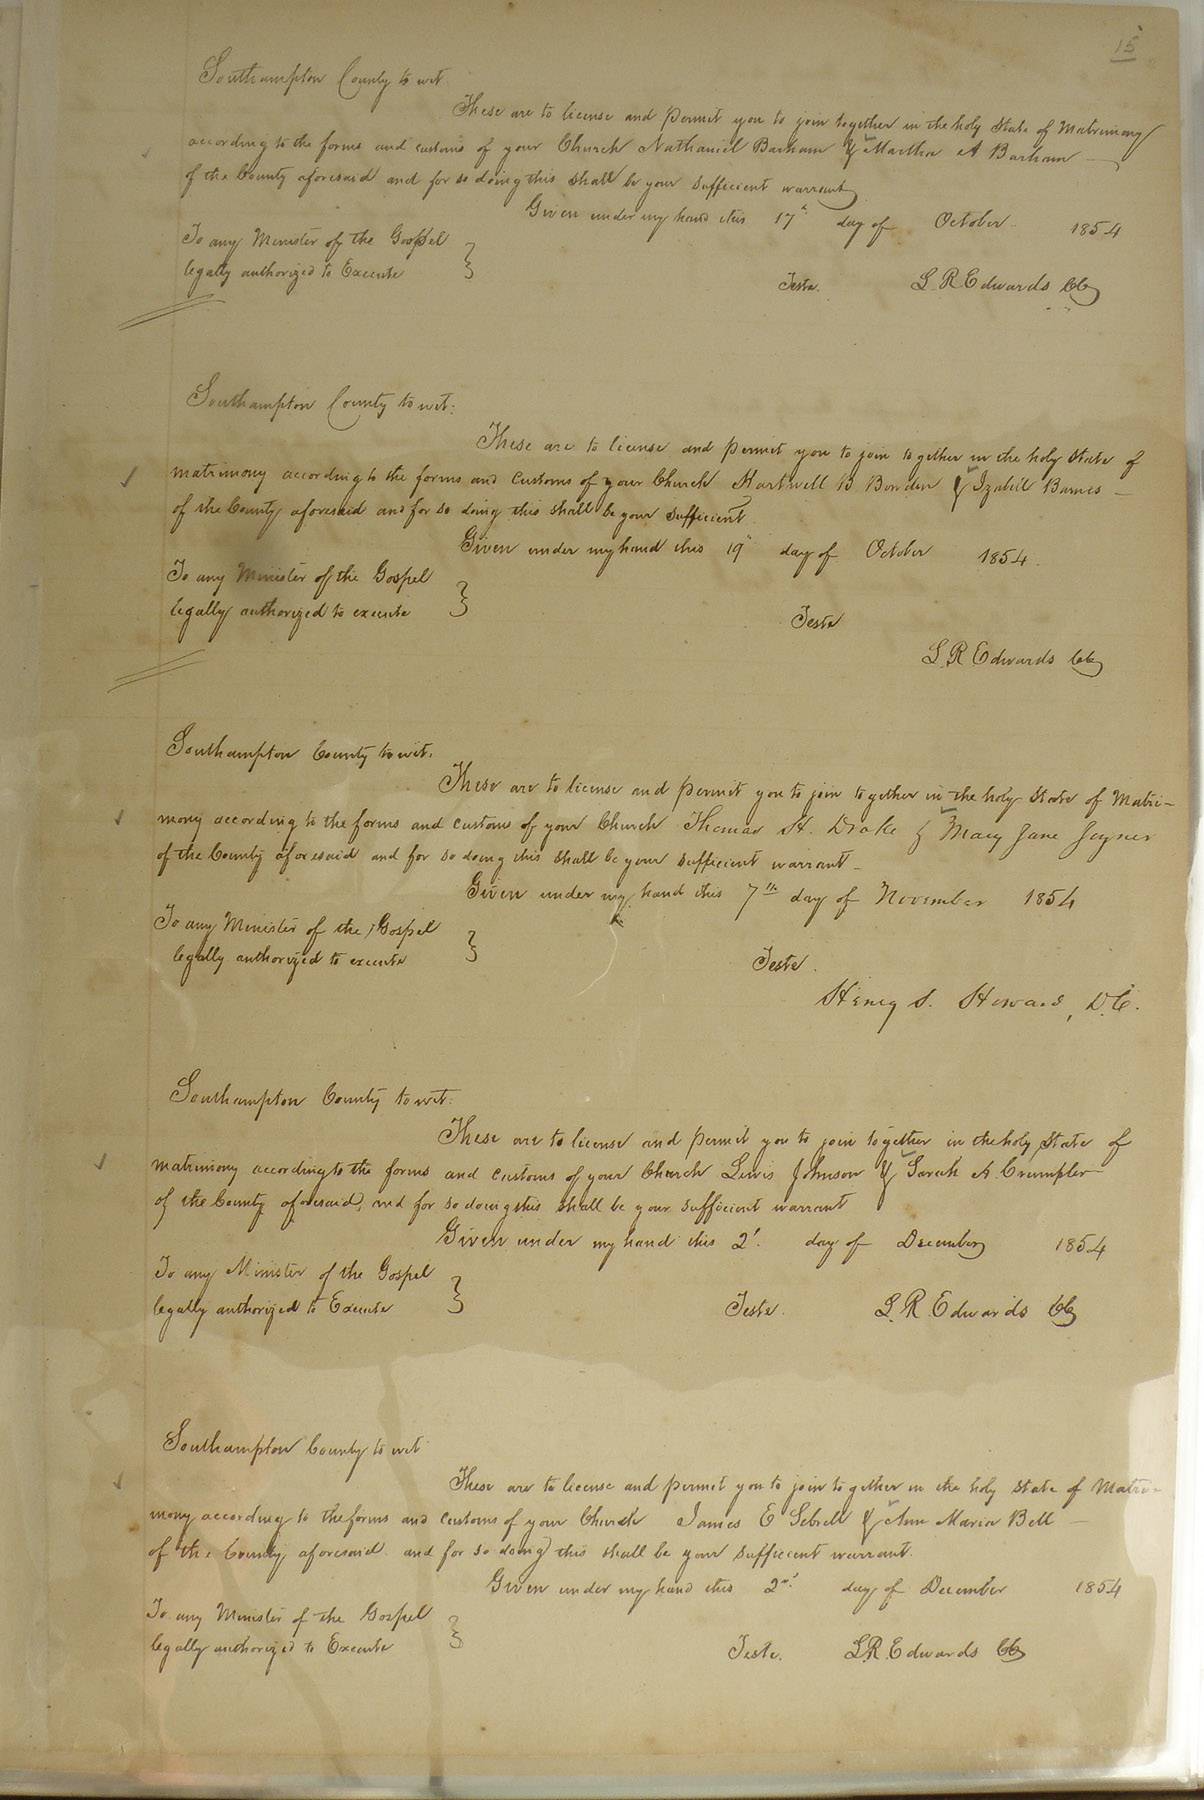 15
Southampton County to wit
These are to license and permit you to join together in the holy State of Matrimony
according to the forms and customs of your Church Nathaniel Barham & Martha A Barham
of the County aforesaid and for so doing this shall be your sufficient warrant
Given under my hand this 17th day of October 1854
To any Minister of the Gospel
legally authorized to Execute
Teste. L. R. Edwards
Southampton County to wit:
These are to license and permit you to join together in the holy State of
matrimony according to the forms and customs of your Church Hartwell B Bowden & Izabell Barnes
of the County aforesaid and for so doing this shall be your sufficient
Given under my hand this 19" day of October 1854.
To any Minister of the Gospel
legally authorized to execute
Teste
L. R. Edwards
Southampton County to wit.
These are to license and permit you to join together in the holy State of Matri-
mony according to the forms and customs of your Church Thomas H. Drake & Mary Jane Joyner
of the County aforesaid and for so doing this shall be your sufficient warrant
Given under my hand this 7th day of November 1854
To any Minister of the Gospel
legally authorized to execute
Teste.
Henry S. Howard, D.C.
Southampton County to wit:
These are to license and permit you to join together in the holy State of
matrimony according to the forms and customs of your Church Lewis Johnson & Sarah A. Crumpler
of the County aforesaid, and for so doing this shall be your sufficient warrant
Given under my hand this 2d. day of December 1854
To any Minister of the Gospel
legally authorized to Execute
Teste. L. R. Edwards
Southampton County to wit
These are to license and permit you to join together in the holy State of Matri-
mony according to the forms and customs of your Church James E Sebrell & Ann Maria Bell
of the County aforesaid and for so doing this shall be your sufficient warrant.
Given under my hand this 2nd day of December 1854
To any Minister of the Gospel
legally authorized to Execute
Teste. L. R. Edwards